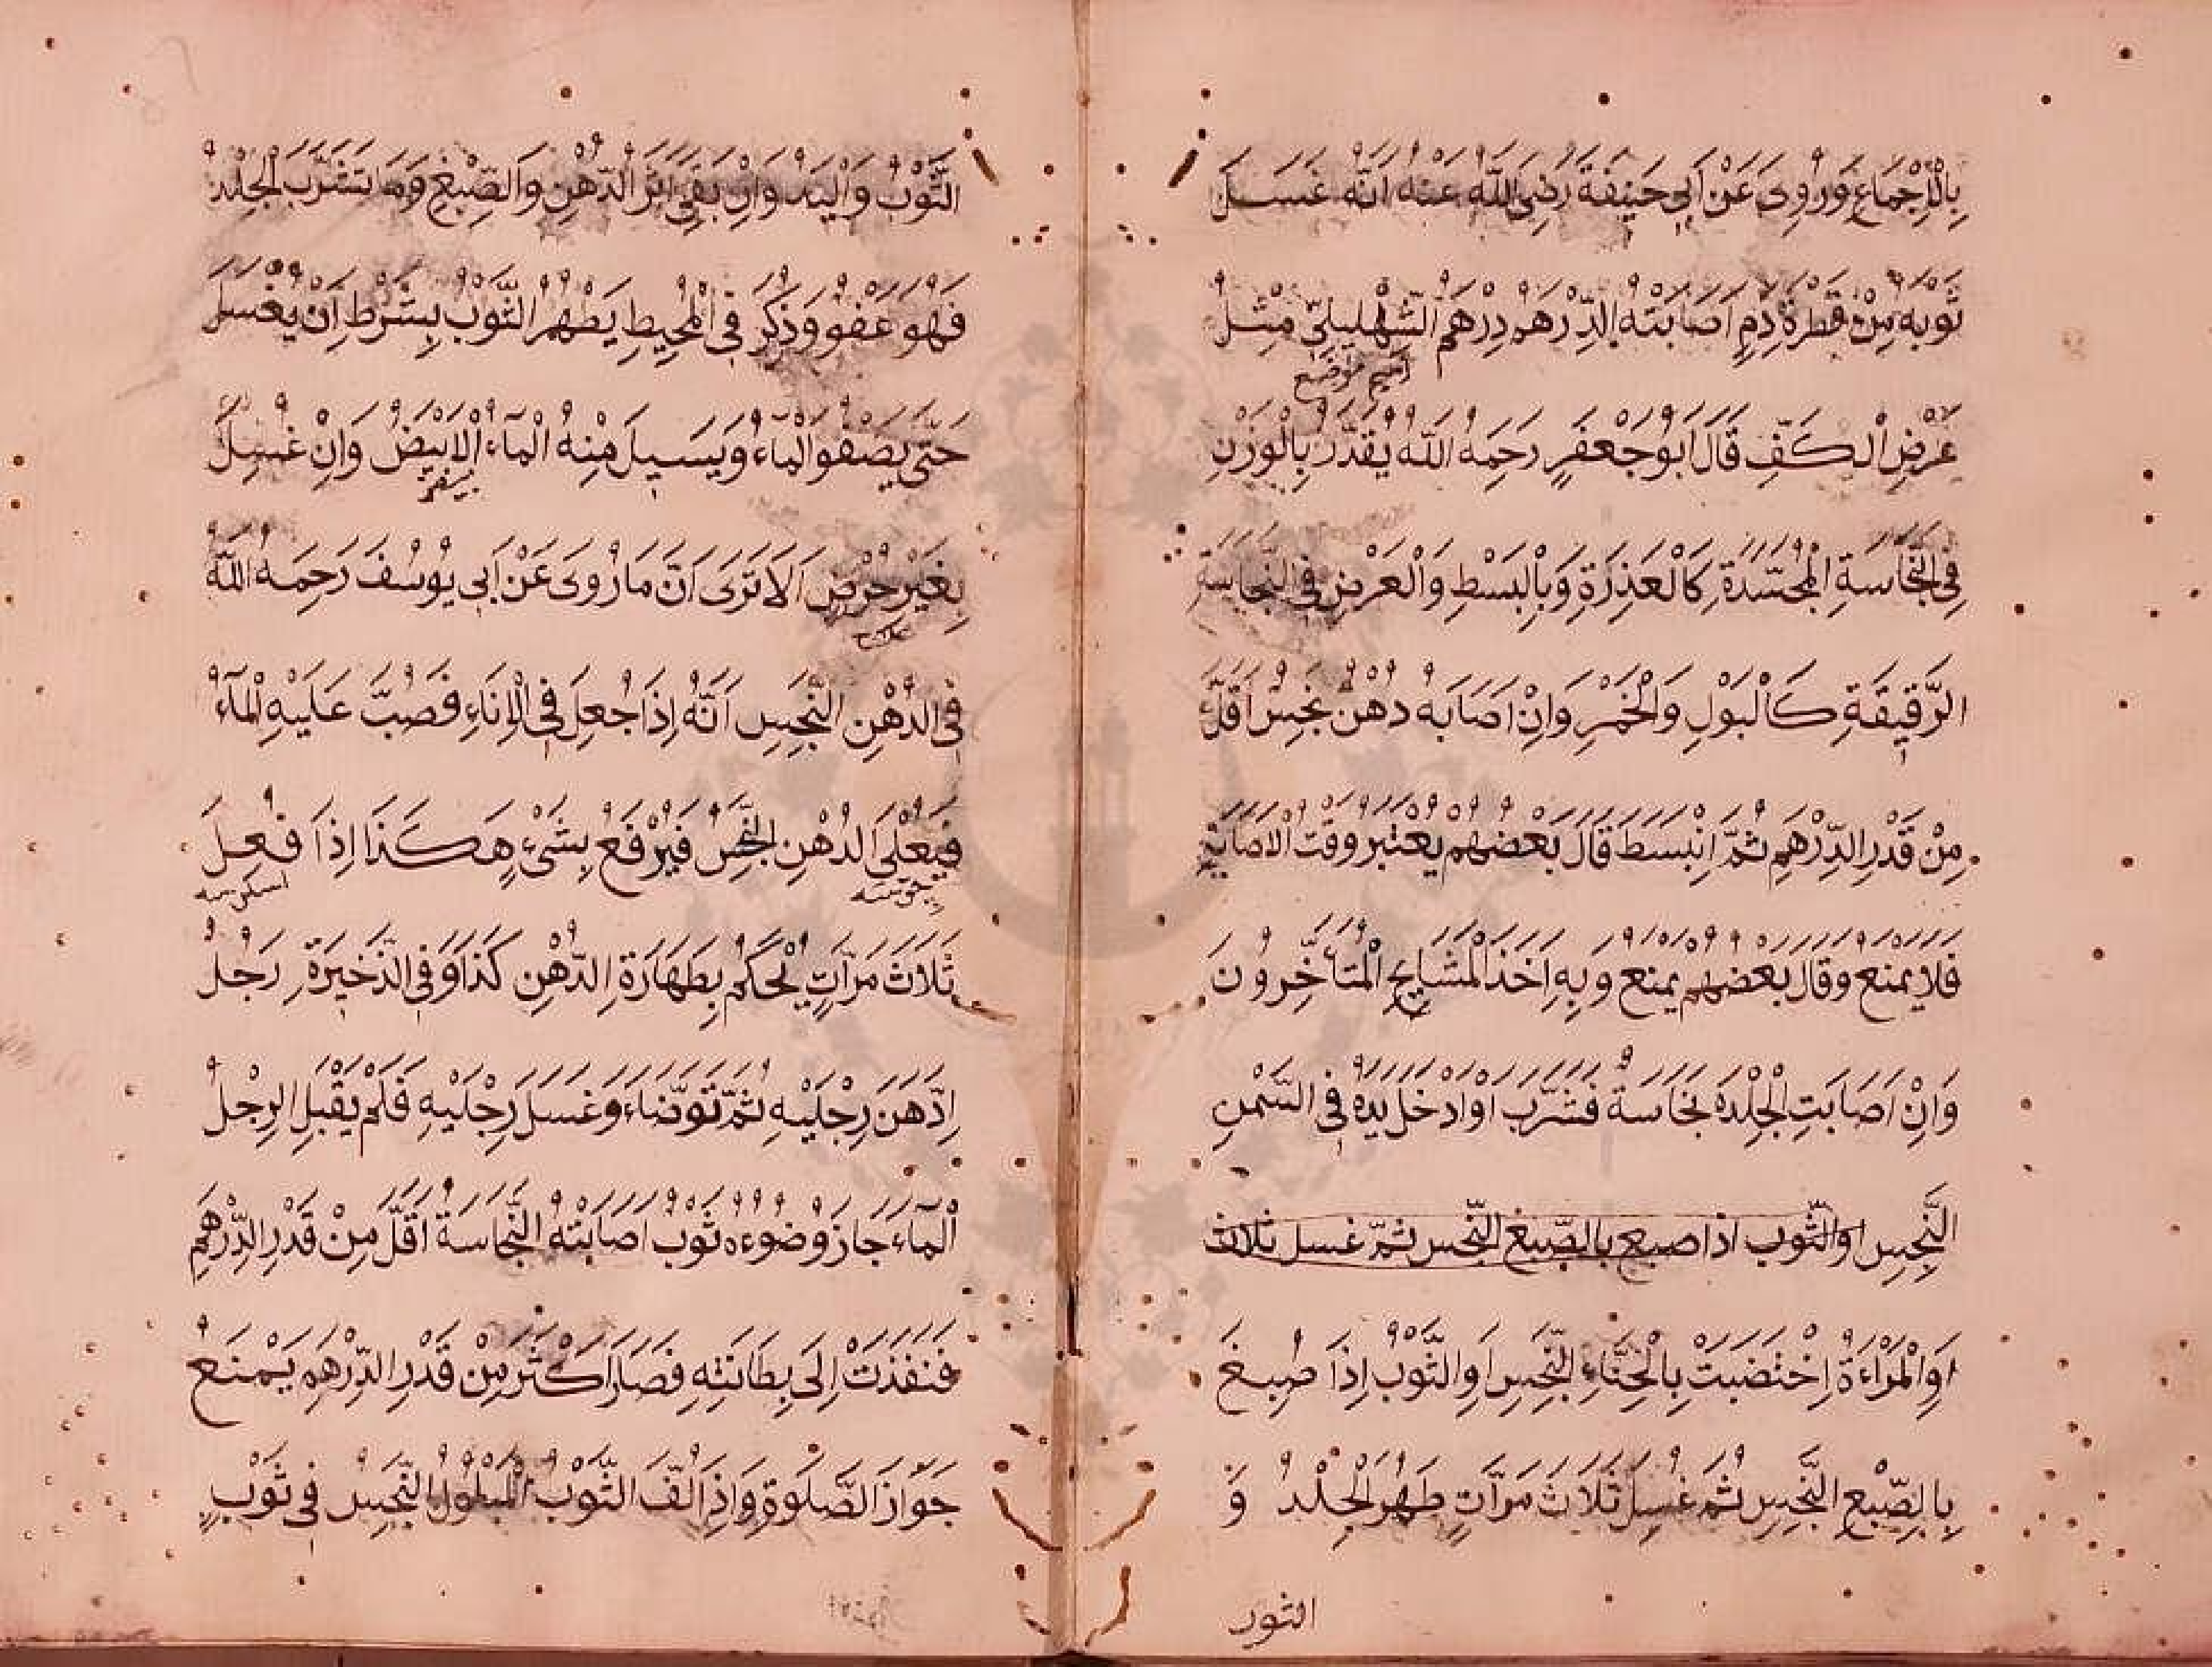 بِالْاِجْمَاعِ وَرُوِىَ عَنْ اَبِى حَنِيفَةَ رَضِىَ اللّٰهُ عَنْهُ اَنَّهُ غَسَلَ
ثَوْبَهُ مِنْ قَطْرَةِ دَمٍ اَصَابَتْهُ الدِّرْهَمُ دِرْهَمُ الشَّهْلِيلِىِّ مِثْلُ
اسم موضع
عَرْضِ الْكَفِّ قَالَ اَبُو جَعْفَرٍ رَحِمَهُ اللّٰهُ يُقَدَّرُ بِالْوَزْنِ
فِى النَّجَاسَةِ الْمُجَسَّدَةِ كَالْعَذِرَةِ وَبِالْبَسْطِ وَالْعَرْضِ فِى النَّجَاسَةِ
الرَّقِيقَةِ كَالْبَوْلِ وَالْخَمْرِ وَاِنْ اَصَابَهُ دُهْنٌ نَجِسٌ اَقَلُّ
مِنْ قَدْرِ الدِّرْهَمِ ثُمَّ اِنْبَسَطَ قَالَ بَعْضُهُمْ يُعْتَبَرُ وَقْتُ الْاِصَابَةِ
فَلَا يَمْنَعُ وَقَالَ بَعْضُهُمْ يَمْنَعُ وَبِهِ اَخَذَ الْمَشَايِخُ الْمُتَأَخِّرُونَ
وَاِنْ اَصَابَتِ الْجِلْدَةَ نَجَاسَةٌ فَتَشَرَّبَ اَوْ اَدْخَلَ يَدَهُ فِى السَّمْنِ
النَّجِسِ اَوِ الثَّوْبُ اذا صبغ بالصّبغ النّجس ثمّ غسل ثلاث
اَوِ الْمَرْاَءَةُ اِخْتَضَبَتْ بِالْحِنَّاءِ النَّجِسِ اَوِ الثَّوْبُ اِذَا صُبِغَ
بِالصِّبْغِ النَّجِسِ ثُمَّ غُسِلَ ثَلَاثَ مَرَّاتٍ طَهُرَ الْجِلْدُ وَ
الثوب
الثَّوْبُ وَالْيَدُ وَاِنْ بَقِىَ اَثَرُ الدُّهْنِ وَالصِّبْغِ وَمَا يَتَشَرَّبُ الْجِلْدُ
فَهُوَ عَفْوٌ وَذُكِرَ فِى الْمُحِيطِ يَطْهُرُ الثَّوْبُ بِشَرْطِ اَنْ يُغْسَلَ
حَتَّى يَصْفُوَ الْمَاءُ وَيَسِيلَ مِنْهُ الْمَاءُ الْاَبْيَضُ وَاِنْ غُسِلَ
بِغَيْرِ حُرْضٍ اَلَا تَرَى اَنَّ مَا رُوِىَ عَنْ اَبِى يُوسُفَ رَحِمَهُ اللّٰهُ
فِى الدُّهْنِ النَّجِسِ اَنَّهُ اِذَا جُعِلَ فِى الْاِنَاءِ فَصُبَّ عَلَيْهِ الْمَآءُ
فَيَعْلَى الدُّهْنِ النَّجِسُ فَيُرْفَعُ بِشَىْءٍ هَكَذَا اِذَا فُعِلَ
ثَلَاثَ مَرَّاتٍ يُحْكَمُ بِطَهَارَةِ الدُّهْنِ كَذَا وَفِى الذَّخِيرَةِ رَجُلٌ
اِدَّهَنَ رِجْلَيْهِ ثُمَّ تَوَضَّاءَ وَغَسَلَ رِجْلَيْهِ فَلَمْ يَقْبَلِ الرِّجْلُ
الْمَاءَ جَازَ وُضُوءُهُ ثَوْبٌ اَصَابَتْهُ النَّجَاسَةُ اَقَلَّ مِنْ قَدْرِ الدِّرْهَمِ
فَنَفَذَتْ اِلَى بِطَانَتِهِ فَصَارَ اَكْثَرَ مِنْ قَدْرِ الدِّرْهَمِ يَمْنَعُ
جَوَازَ الصَّلٰوةِ وَاِذَا لُفَّ الثَّوْبُ الْمَبْلُولُ النَّجِسُ فِى ثَوْبٍ